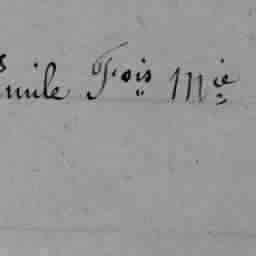 Emile Fois Mie